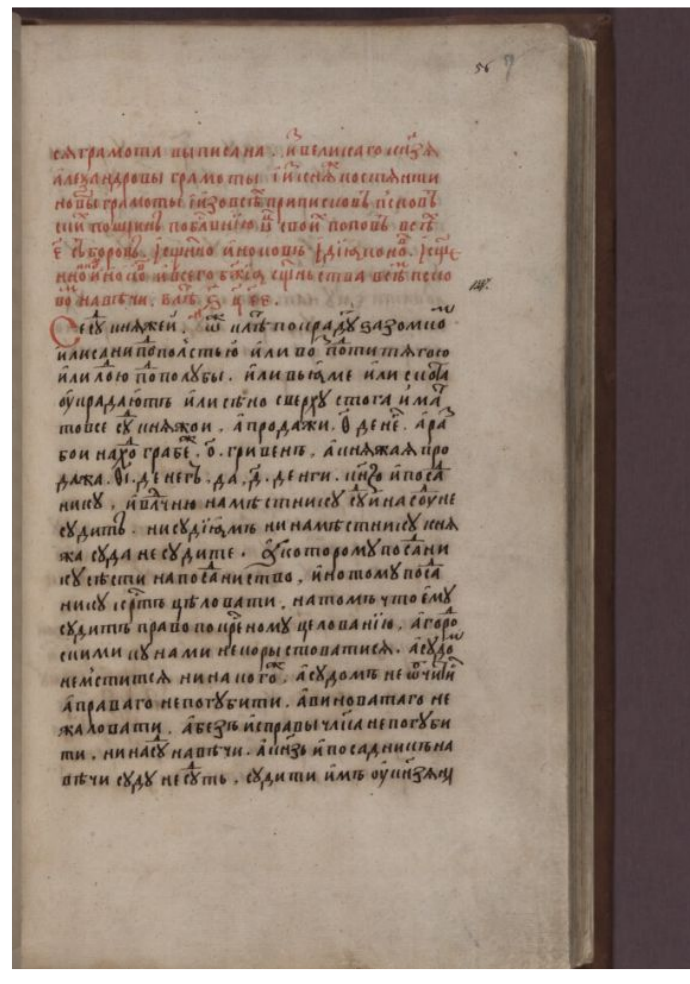 56
сѧ грамота выписана. и великаго кнѧзѧ
алеѯандровы грамоты. і и кнѧ костѧнти
новы грамоты і изо всѣ приписковъ псков
ски пошлинъ по бл҃внїю ѿ свои поповъ всѣ
е҃ съборовъ. і сщ҃нно иноковъ, і дїяконо. і сщ҃е
нно и ко и всего б҃жїѧ сщ҃ньства всѣ пско
во на вѣчи. в лѣ ҂ѕ ц҃ е҃е
Се су кнѧжеи. ѿ клѣ покраду за зомко
или сани по полстью или во по титѧгою
или лою по полубы. или въ яме или скота
оукрадають или сѣно сверху стога има
то все су кнѧжои, а продажи. ѳ҃ дене. а ра
бои нахо грабе. о҃. гривенъ, а кнѧжая про
дажа. ѳ҃і. денегъ. да, д҃. денги. кнѧзю и поса
нику, и влч҃ню намѣстнику су и на соу не
судить. ни судїямъ ни намѣстнику кнѧ
жа суда не судите. а которому посани
ку сѣсти на посаниство, ино тому поса
нику крстъ цѣловати, на томъ что ему
судить право по крсному целованїю, а горо
скими кунами не корыстоватисѧ. а судо
не мститсѧ ни на кого. а судомъ не ѿчитис
а праваго не погубити. а виноватаго не
жаловати, а безъ исправы чл҃ка не погуби
ти, ни на су на вѣчи. а кнѧзь и посадникъ на
вѣчи суду не суть, судити имъ оу кнѧзѧ н